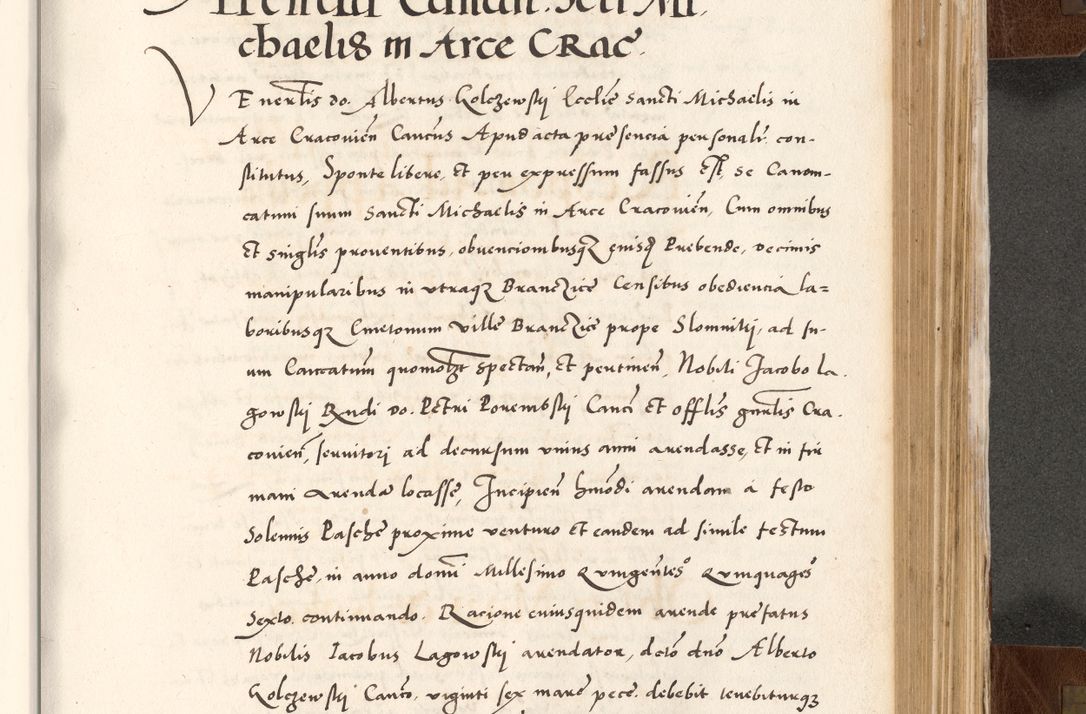 Arendae Canon. Scti Mi,
chaelis in Arce CRac̃.
VEnerl̃is do. Albertus Golczewskj Ecclie Sancti Michaelis in
Arce Cracovień Canc̃us Apud acta pręsencia personalr̃ con-
stitutus, Sponte libere, Et per expressum fassus est, se Canoni-
catum suum Sancti Michaelis in Arce Cracovień, Cum omnibus
Et singlis̃ proventibus, obvencionibusqꝫ eiusqꝫ Prebende, Decimis
manipularibus in utraqꝫ Branczicę Censibus obediencia la=
boribusqꝫ Cmetonum villę Branczicę prope Slomnikj, ad su-
um Canc̃atum̃ quomołt spectań, Et pertineń, Nobili Jacobo La-
gowskj Rńdi Do. Petri Porembskj Canc̃i Et offl̃is gńrlis Cra-
covień, servitorj ad decursum unius anni arendasse, Et in fir
mam Arendam locassę, Incipień hmõdi arendam a festo
Solennis Paschę proxime venturo Et eandem ad simile festum
Paschę, in anno domĩ Millesimo Quingentes̃º Quinquages̃º
Sexto, continuando. Racione cuiusquidem arende prefatus
Nobilis Iacobus Lagowskj arendator, dctõ dnõ Alberto
Golczewskj Canc̃o, viginti sex marc̃ pecc̃. debebit tenebiturqꝫ